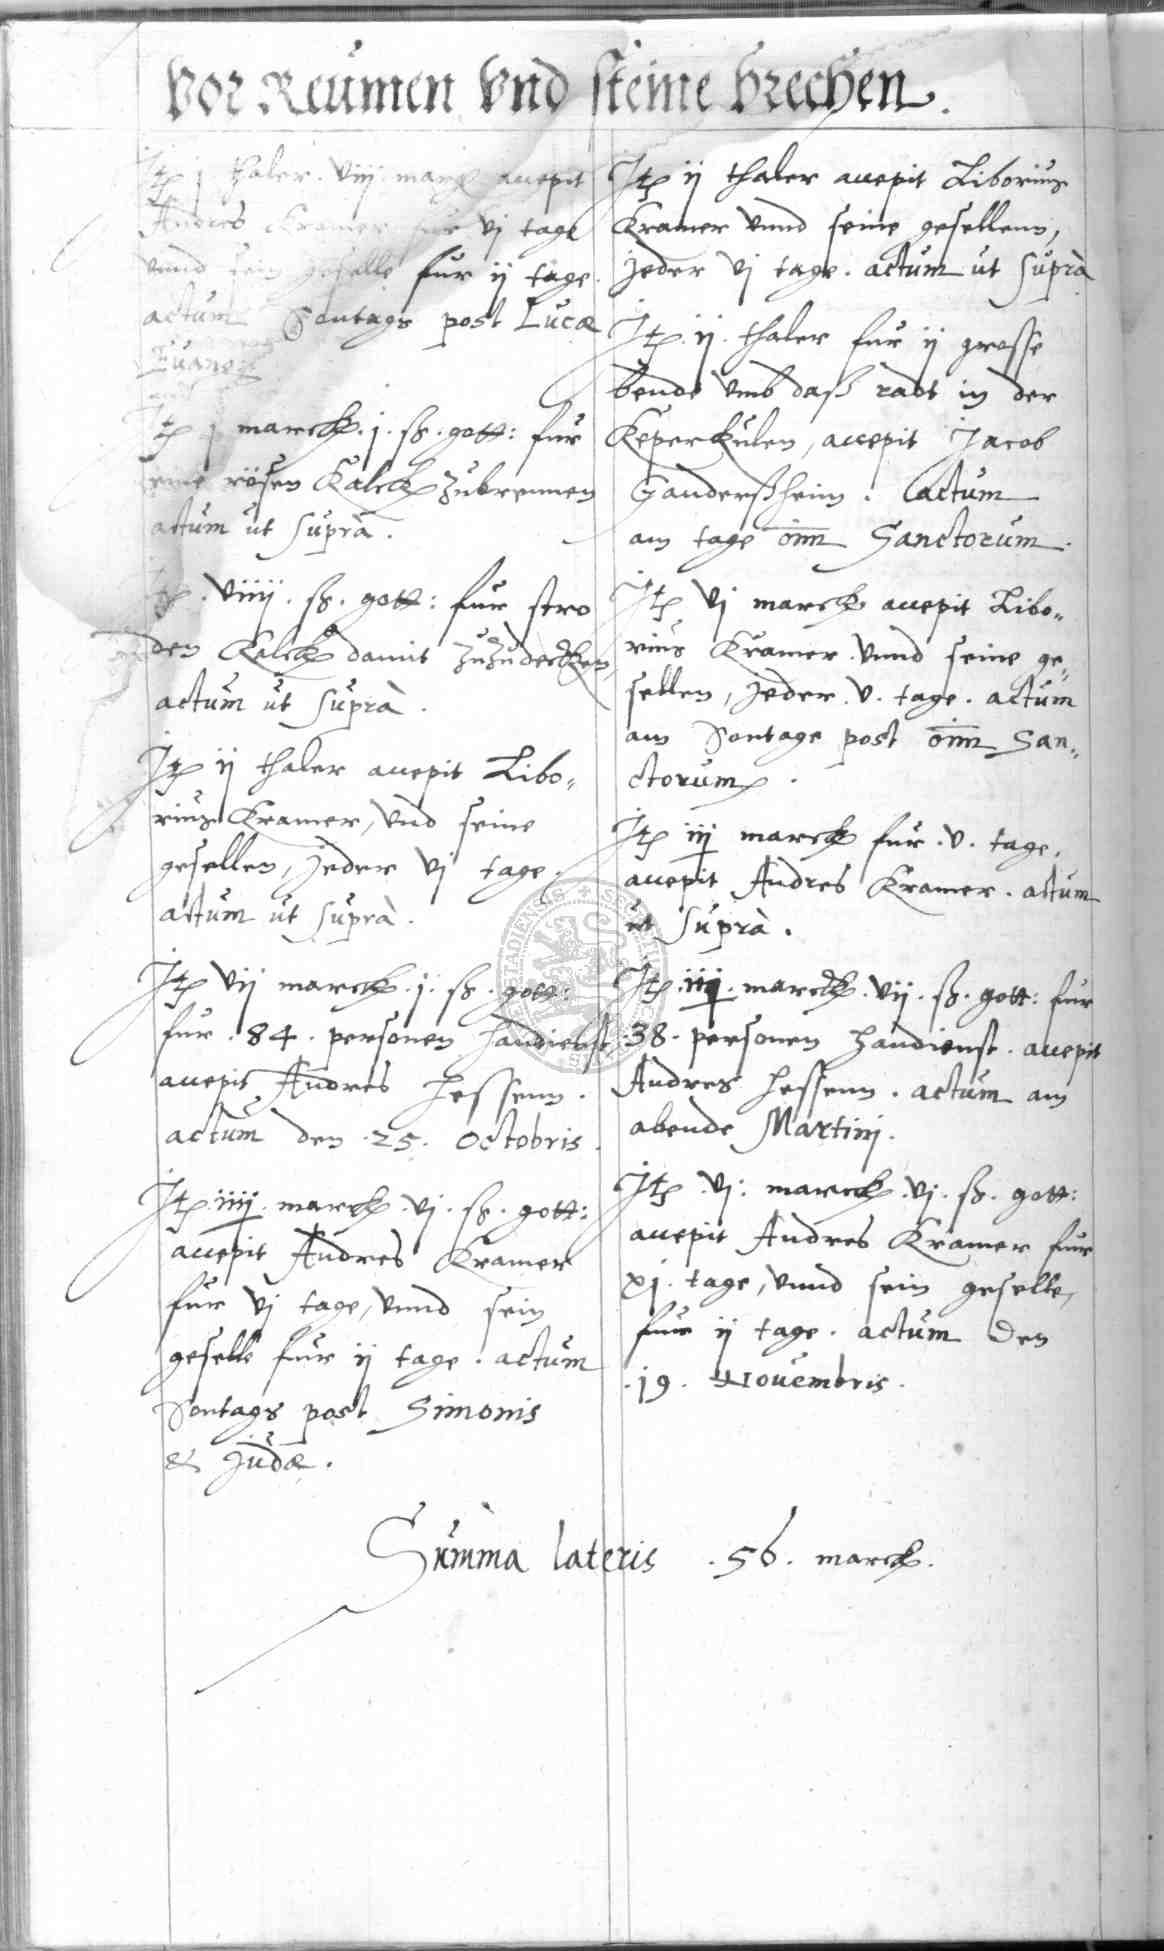 Vor Reumen Vnd steine brechen.
Itē j thaler. viij marck accepit
Andres Kramer fur vj tage
vnnd sein geselle fur ij tage.
actum Sontags post Lucæ
Euang
Itē j marck. j. ß. gott: fur
eine rösen Kalck zubrennen
actum ut suprà.
Itē. viiij. ß. gott: fur stro
den Kalck damit zuzudecken,
actum ut suprà.
Itē ij thaler accepit Libo„
rius Kramer, vnd seine
gesellen, jeder vj tage.
actum ut suprà.
Itē vij marck. j. ß. gott:
fur. 84. personen handienst,
accepit Andres Hessenn.
actum den. 25. Octobris.
Itē. iiij. marck. vj. ß. gott:
accepit Andres Kramer
fur vj tage, vnnd sein
geselle fur ij tage. actum
Sontags post Simonis
& Judæ.
Itē ij thaler accepit Liborius
Kramer vnnd seine gesellenn,
jeder vj tage. actum ut suprà
Itē. ij. thaler fur ij grosse
bende vmb daß radt in der
Keperkulen, accepit Jacob
Ganderßheim. actum
am tage oīm Sanctorum.
Itē vj marck accepit Libo„
rius Kramer vnnd seine ge„
sellen, jeder. v. tage. actum
am Sontage post oīm San„
ctorum.
Itē iij marck fur. v. tage,
accepit Andres Kramer. actum
ut suprà.
Itē. iij. marck. vij. ß. gott: fur
38. personen handienst. accepit
Andres Hessenn. actum am
abende Martinj.
Itē. vj. marck. vj. ß. gott:
accepit Andres Kramer fur
xj. tage, vnnd sein geselle,
fur ij tage. actum den
.19. Nouembris.
Summa lateris .56. marck.